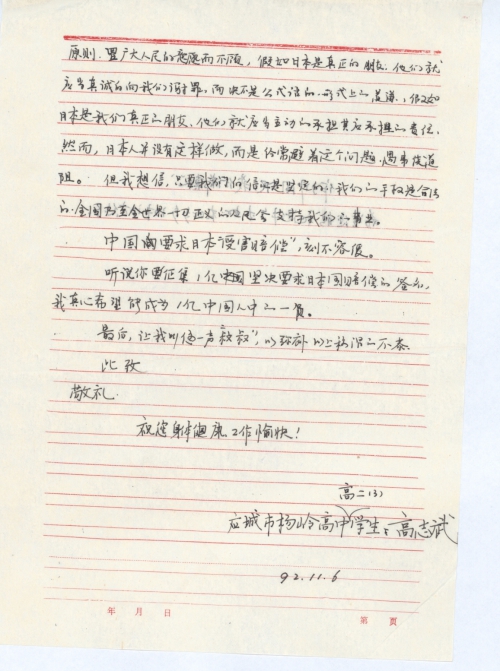 原则、置广大人民的意愿而不顾，假如日本是真正的朋友，他们就
应当真诚的向我们谢罪，而决不是公式话的、形式上的道谦，假如
日本是我们真正的朋友，他们就应当主动的承担其应承担的责任，
然而，日本人并没有这样做，而是经常避着这个问题，遇事伎道
阻。但我想信，只要我们的信念是坚定的，我们的平权是合法
的，全国乃至全世界一切正义的人民会支持我们的事业。
中国向要求日本"受害赔偿"，刻不容缓。
听说你要征集1亿中国坚决要求日本国赔偿的签名，
我真心希望能成为1亿中国人中的一员。
最后，让我叫您一声"叔叔"，以弥补以上称谓的不恭。
此致
敬礼
祝您身体健康 工作愉快！
高二(3)
应城市杨岭高中学生：高志斌
92.11.6
年 月 日 第 页